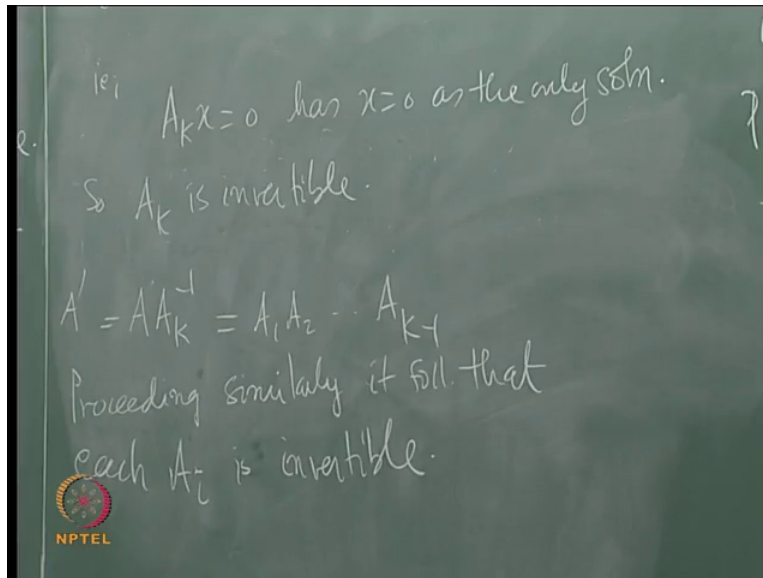 ie,
A_k x = 0 has x = 0 as the only soln.
So A_k is invertible.
A' = A A_k^{-1} = A_1 A_2 ... A_{k-1}
Proceeding similarly it foll. that
each A_i is invertible.
NPTEL